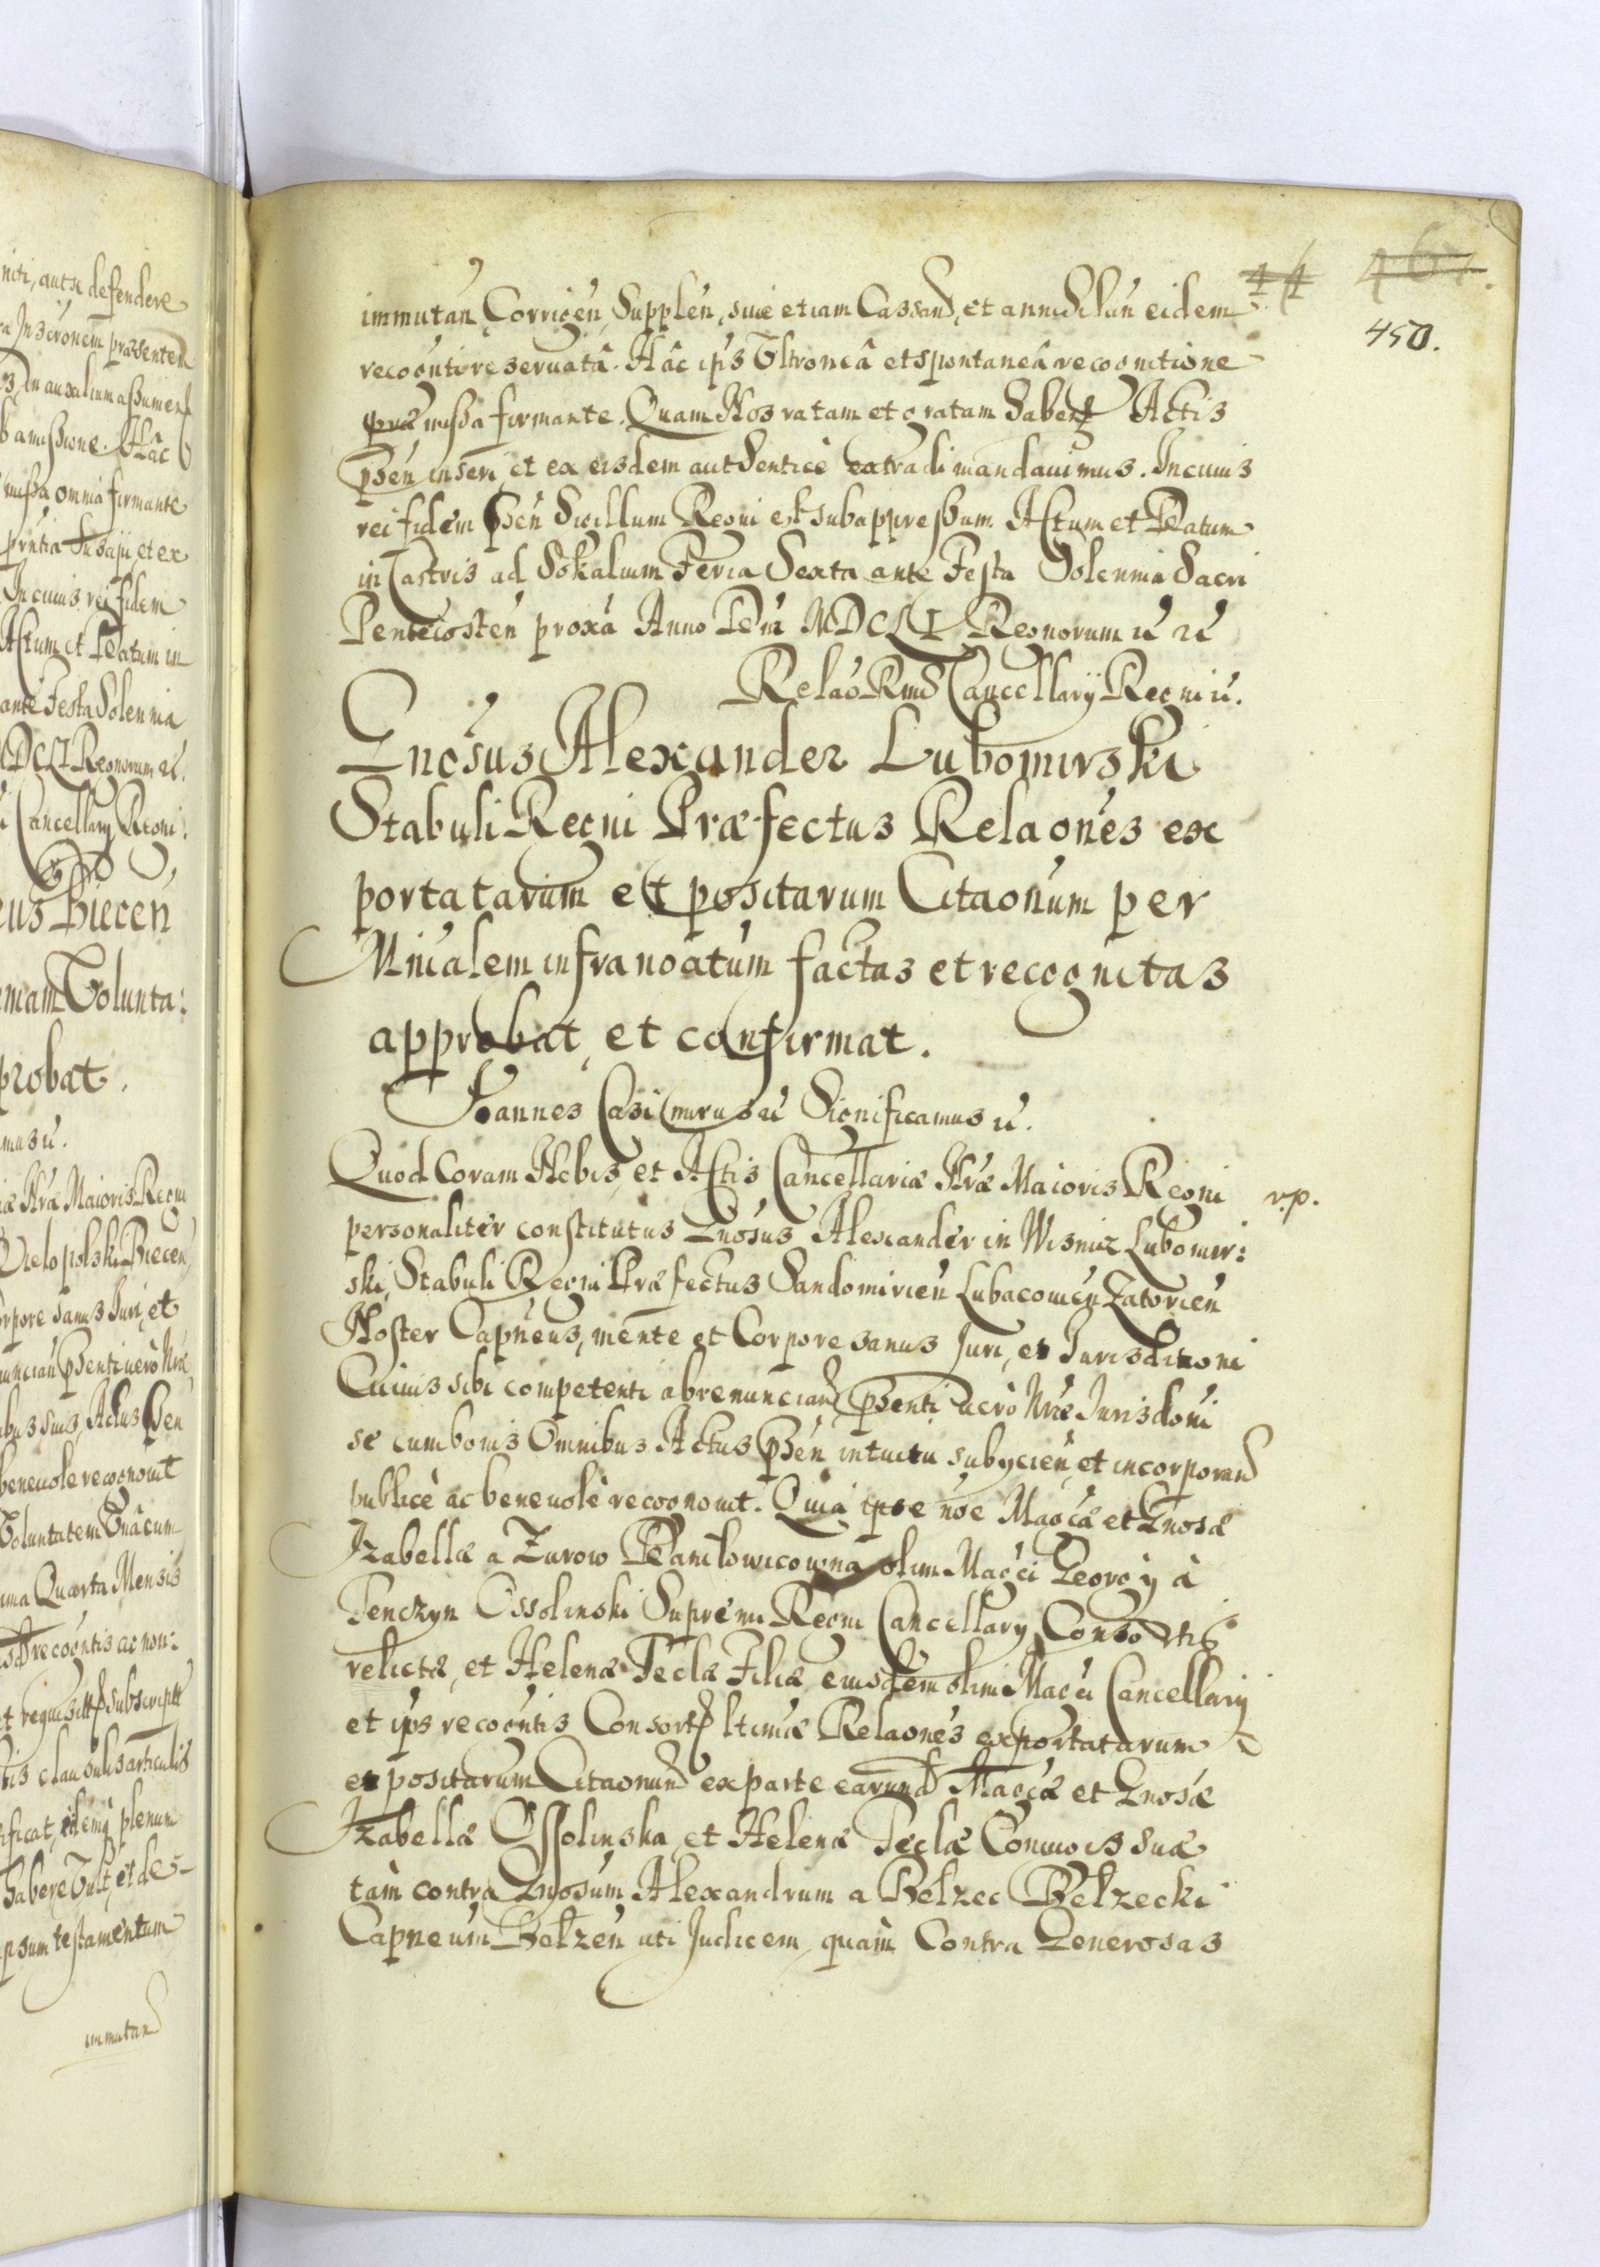 niti, aut se defendere
ra Inscronem præsentem
in auxilium assumens
b amissione. Hâc
missa omnia firmante
In cuius rei fidem
Actum et Datum in
ante Festa Solennia
MDCLI Regnorum etc.
Cancellarÿ Regni
eus Biecen
emam Volunta:
probat.
mus etc.
iæ Nræ Maioris Regni
Wielopolski Biecen
orpore sanus Iuri, et
nuncian psenti uerò Nræ
ibus suis, Actus psen
beneuole recognouit
Voluntatem Vnâcum
ima Quarta Mensis
recogntis ac non:
et requisitt subscriptt
tis clausulis articulis
ificat, idemq plenum
habere Vult, et de-
psum testamentum
immutand
44 461.
450.
immutan, Corrigen, Supplen, siue etiam Cassand, et annihilan eidem
recognti reseruatâ. Hâc ips Vltroneâ et spontaneâ recognitione
præmissa firmante. Quam Nos ratam et gratam haben Actis
psen inseri, et ex eisdem authenticè extradi mandauimus. In cuius
rei fidem psen Sigillum Regni est subappressum. Actum et Datum
in Castris ad Sokalium Feria Sexta ante Festa Solennia Sacri
Pentecosten proxa Anno Dni MDCLI Regnorum etc etc
Relao Rmi Cancellarÿ Regni etc.
Gnosus Alexander Lubomirski
Stabuli Regni Præfectus Relaones ex
portatarum et positarum Citaonum per
Mnialem infranoatum factas et recognitas
approbat, et confirmat.
Joannes Casimirus etc Significamus etc.
Quod Coram Nobis, et Actis Cancellariæ Nræ Maioris Regni
r.p.
personaliter constitutus Gnosus Alexander in Wisnicz Lubomir:
ski, Stabuli Regni Præfectus Sandomirien Lubaczouien Zatorien
Noster Capneus, mente et Corpore sanus Juri, et Jurisditioni
Cuiuis sibi competenti abrenunciand psenti uerò Nræ Jurisdoni
se cum bonis Omnibus Actus psen intuitu subÿcien, et incorporand
publicè ac beneuolè recognouit. Quia ipse noe Magcæ et Gnosæ
Izabellæ a Zurow Daniłowicowna olim Magci Georgÿ à
Tenczyn Ossolinski Supremi Regni Cancellarÿ Consortis
relictæ, et Helenæ Teclæ Filiæ eiusdem olim Magci Cancellarÿ
et ips recogntis Consort ltimæ Relaones exportatarum
et positarum Citaonum ex parte earund Magcæ et Gnosæ
Izabellæ Ossolinska et Helenæ Teclæ Coniugis suæ
tàm contra Gnosum Alexandrum a Bełzec Bełzecki
Capneum Bełzen uti Judicem, quàm Contra Generosas